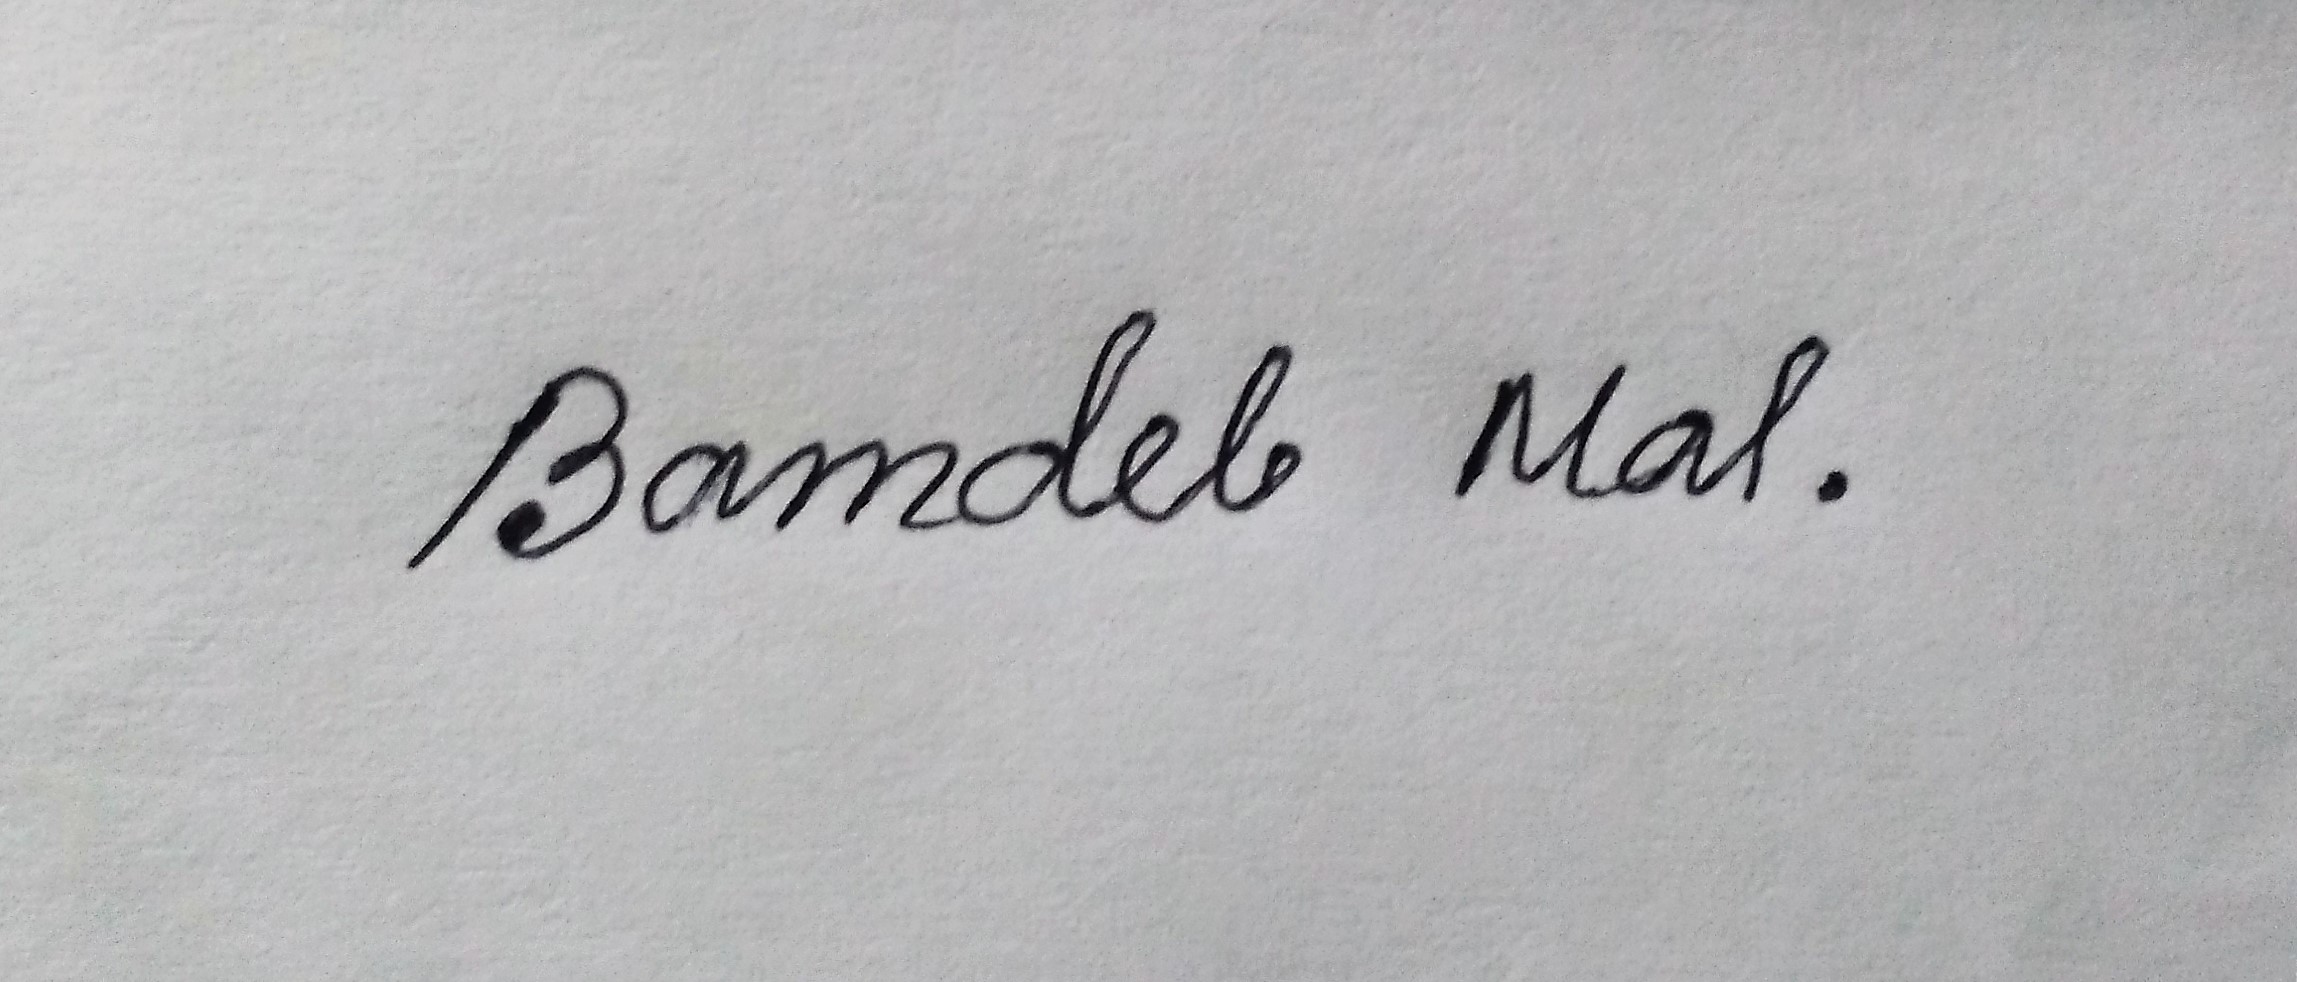 Bamdeb Mal.